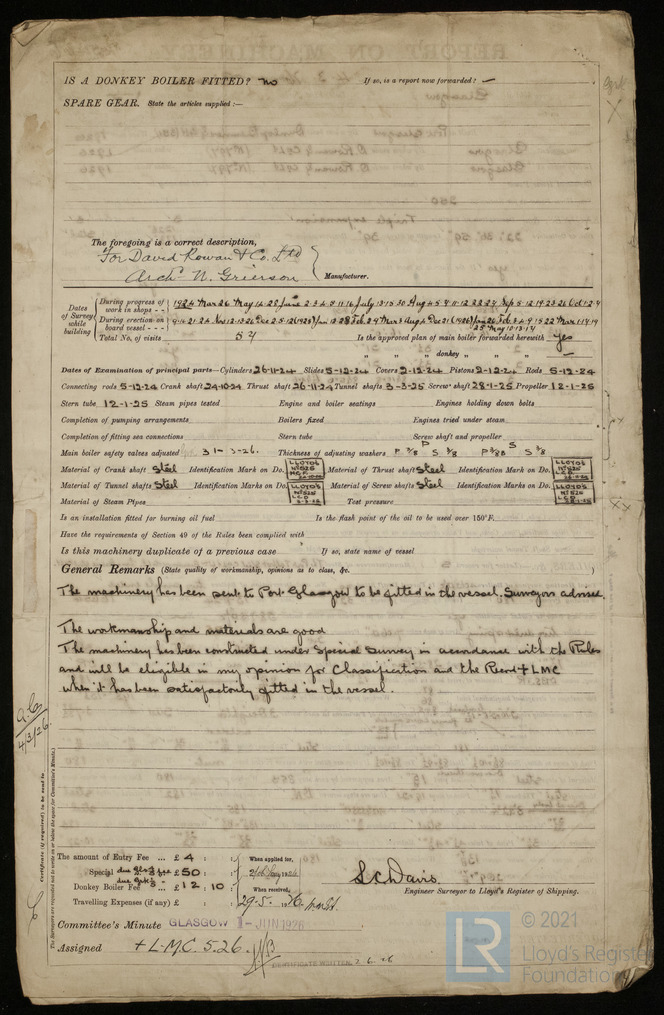 IS A DONKEY BOILER FITTED? No If so, is a report now forwarded? —
SPARE GEAR. State the articles supplied :—
The foregoing is a correct description,
For David Rowan & Co. Ltd
Archd N. Grierson Manufacturer.
Dates of Survey while building
During progress of work in shops - - 1924 Mar 26 May 14 28 June 2 3 4 9 11 16 July 13 15 30 Aug 4 5 9 11 12 22 27 Sep 5 12 19 23 26 Oct 1 2 9
During erection on board vessel - - -
Total No. of visits 57 Is the approved plan of main boiler forwarded herewith Yes
" " " donkey " " —
Dates of Examination of principal parts—Cylinders 26-11-24 Slides 5-12-24 Covers 2-12-24 Pistons 2-12-24 Rods 5-12-24
Connecting rods 5-12-24 Crank shaft 24-10-24 Thrust shaft 26-11-24 Tunnel shafts 3-3-25 Screw shaft 28-1-25 Propeller 12-1-25
Stern tube 12-1-25 Steam pipes tested Engine and boiler seatings Engines holding down bolts
Completion of pumping arrangements Boilers fixed Engines tried under steam
Completion of fitting sea connections Stern tube Screw shaft and propeller
Main boiler safety valves adjusted 31-3-26. Thickness of adjusting washers
Material of Crank shaft Steel Identification Mark on Do. Material of Thrust shaft Steel Identification Mark on Do.
Material of Tunnel shafts Steel Identification Marks on Do. Material of Screw shaft Steel Identification Marks on Do.
Material of Steam Pipes Test pressure
Is an installation fitted for burning oil fuel Is the flash point of the oil to be used over 150°F.
Have the requirements of Section 49 of the Rules been complied with
Is this machinery duplicate of a previous case If so, state name of vessel
General Remarks (State quality of workmanship, opinions as to class, &c. )
The machinery has been sent to Port-Glasgow to be fitted in the vessel. Surveyors advised.
The workmanship and materials are good
The machinery has been constructed under Special Survey in accordance with the Rules
and will be eligible in my opinion for Classification and the Record + LMC
when it has been satisfactorily fitted in the vessel.
4/3/26.
Certificate (if required) to be sent to
The Surveyors are requested not to write on or below the space for Committee's Minute.
The amount of Entry Fee ... £ 4 : : When applied for,
Special £ 50 : :
Donkey Boiler Fee £ 12 : 10 : When received,
Travelling Expenses (if any) £ : : 29-5-
S C Davis
Engineer Surveyor to Lloyd's Register of Shipping.
Committee's Minute GLASGOW 1-JUN 1926
Assigned + L.M.C. 5.26.
CERTIFICATE WRITTEN
LR © 2021
Lloyd's Register
Foundation